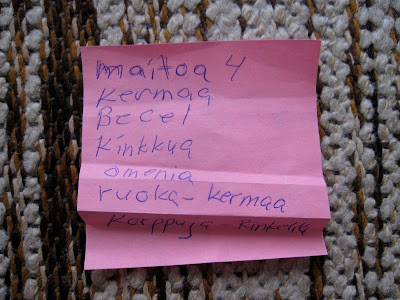 maitoa 4
kermaa
Becel
Kinkkua
omenia
ruoka-kermaa
Korppuja - Rinkeliä